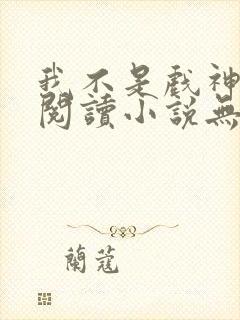 我不是戲神
閱讀小說無
蘭蔻